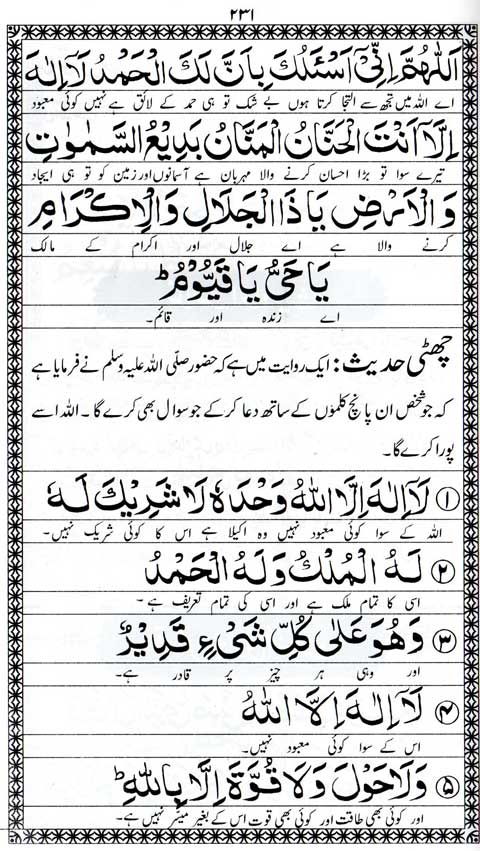 ۲۳۱
اَللّٰهُمَّ اِنِّیْٓ اَسْئَلُكَ بِاَنَّ لَكَ الْحَمْدُ لَآ اِلٰهَ
اے اللہ میں تجھ سے التجا کرتا ہوں بے شک تو ہی حمد کے لائق ہے نہیں کوئی معبود
اِلَّآ اَنْتَ الْحَنَّانُ الْمَنَّانُ بَدِیْعُ السَّمٰوٰتِ
تیرے سوا تو بڑا احسان کرنے والا مہربان ہے آسمانوں اور زمین کو تو ہی ایجاد
وَالْاَرْضِ یَاذَا الْجَلَالِ وَالْاِكْرَامِ
کرنے والا ہے اے جلال اور اکرام کے مالک
یَا حَیُّ یَا قَیُّوْمُ ط
اے زندہ اور قائم۔
چھٹی حدیث: ایک روایت میں ہے کہ حضور صلی اللہ علیہ وسلم نے فرمایا ہے
کہ جو شخص ان پانچ کلموں کے ساتھ دعا کر کے جو سوال بھی کرے گا۔ اللہ اسے
پورا کرے گا۔
۱ لَآ اِلٰهَ اِلَّا اللّٰهُ وَحْدَهٗ لَا شَرِیْكَ لَهٗ
اللہ کے سوا کوئی معبود نہیں وہ اکیلا ہے اس کا کوئی شریک نہیں۔
۲ لَهُ الْمُلْكُ وَلَهُ الْحَمْدُ
اسی کا تمام ملک ہے اور اسی کی تمام تعریف ہے۔
۳ وَهُوَ عَلٰی كُلِّ شَیْءٍ قَدِیْرٌ
اور وہی ہر چیز پر قادر ہے۔
۴ لَآ اِلٰهَ اِلَّا اللّٰهُ
اس کے سوا کوئی معبود نہیں۔
۵ وَلَا حَوْلَ وَلَا قُوَّةَ اِلَّا بِاللّٰهِ ط
اور کوئی بھی طاقت اور کوئی بھی قوت اس کے بغیر میسّر نہیں ہے۔